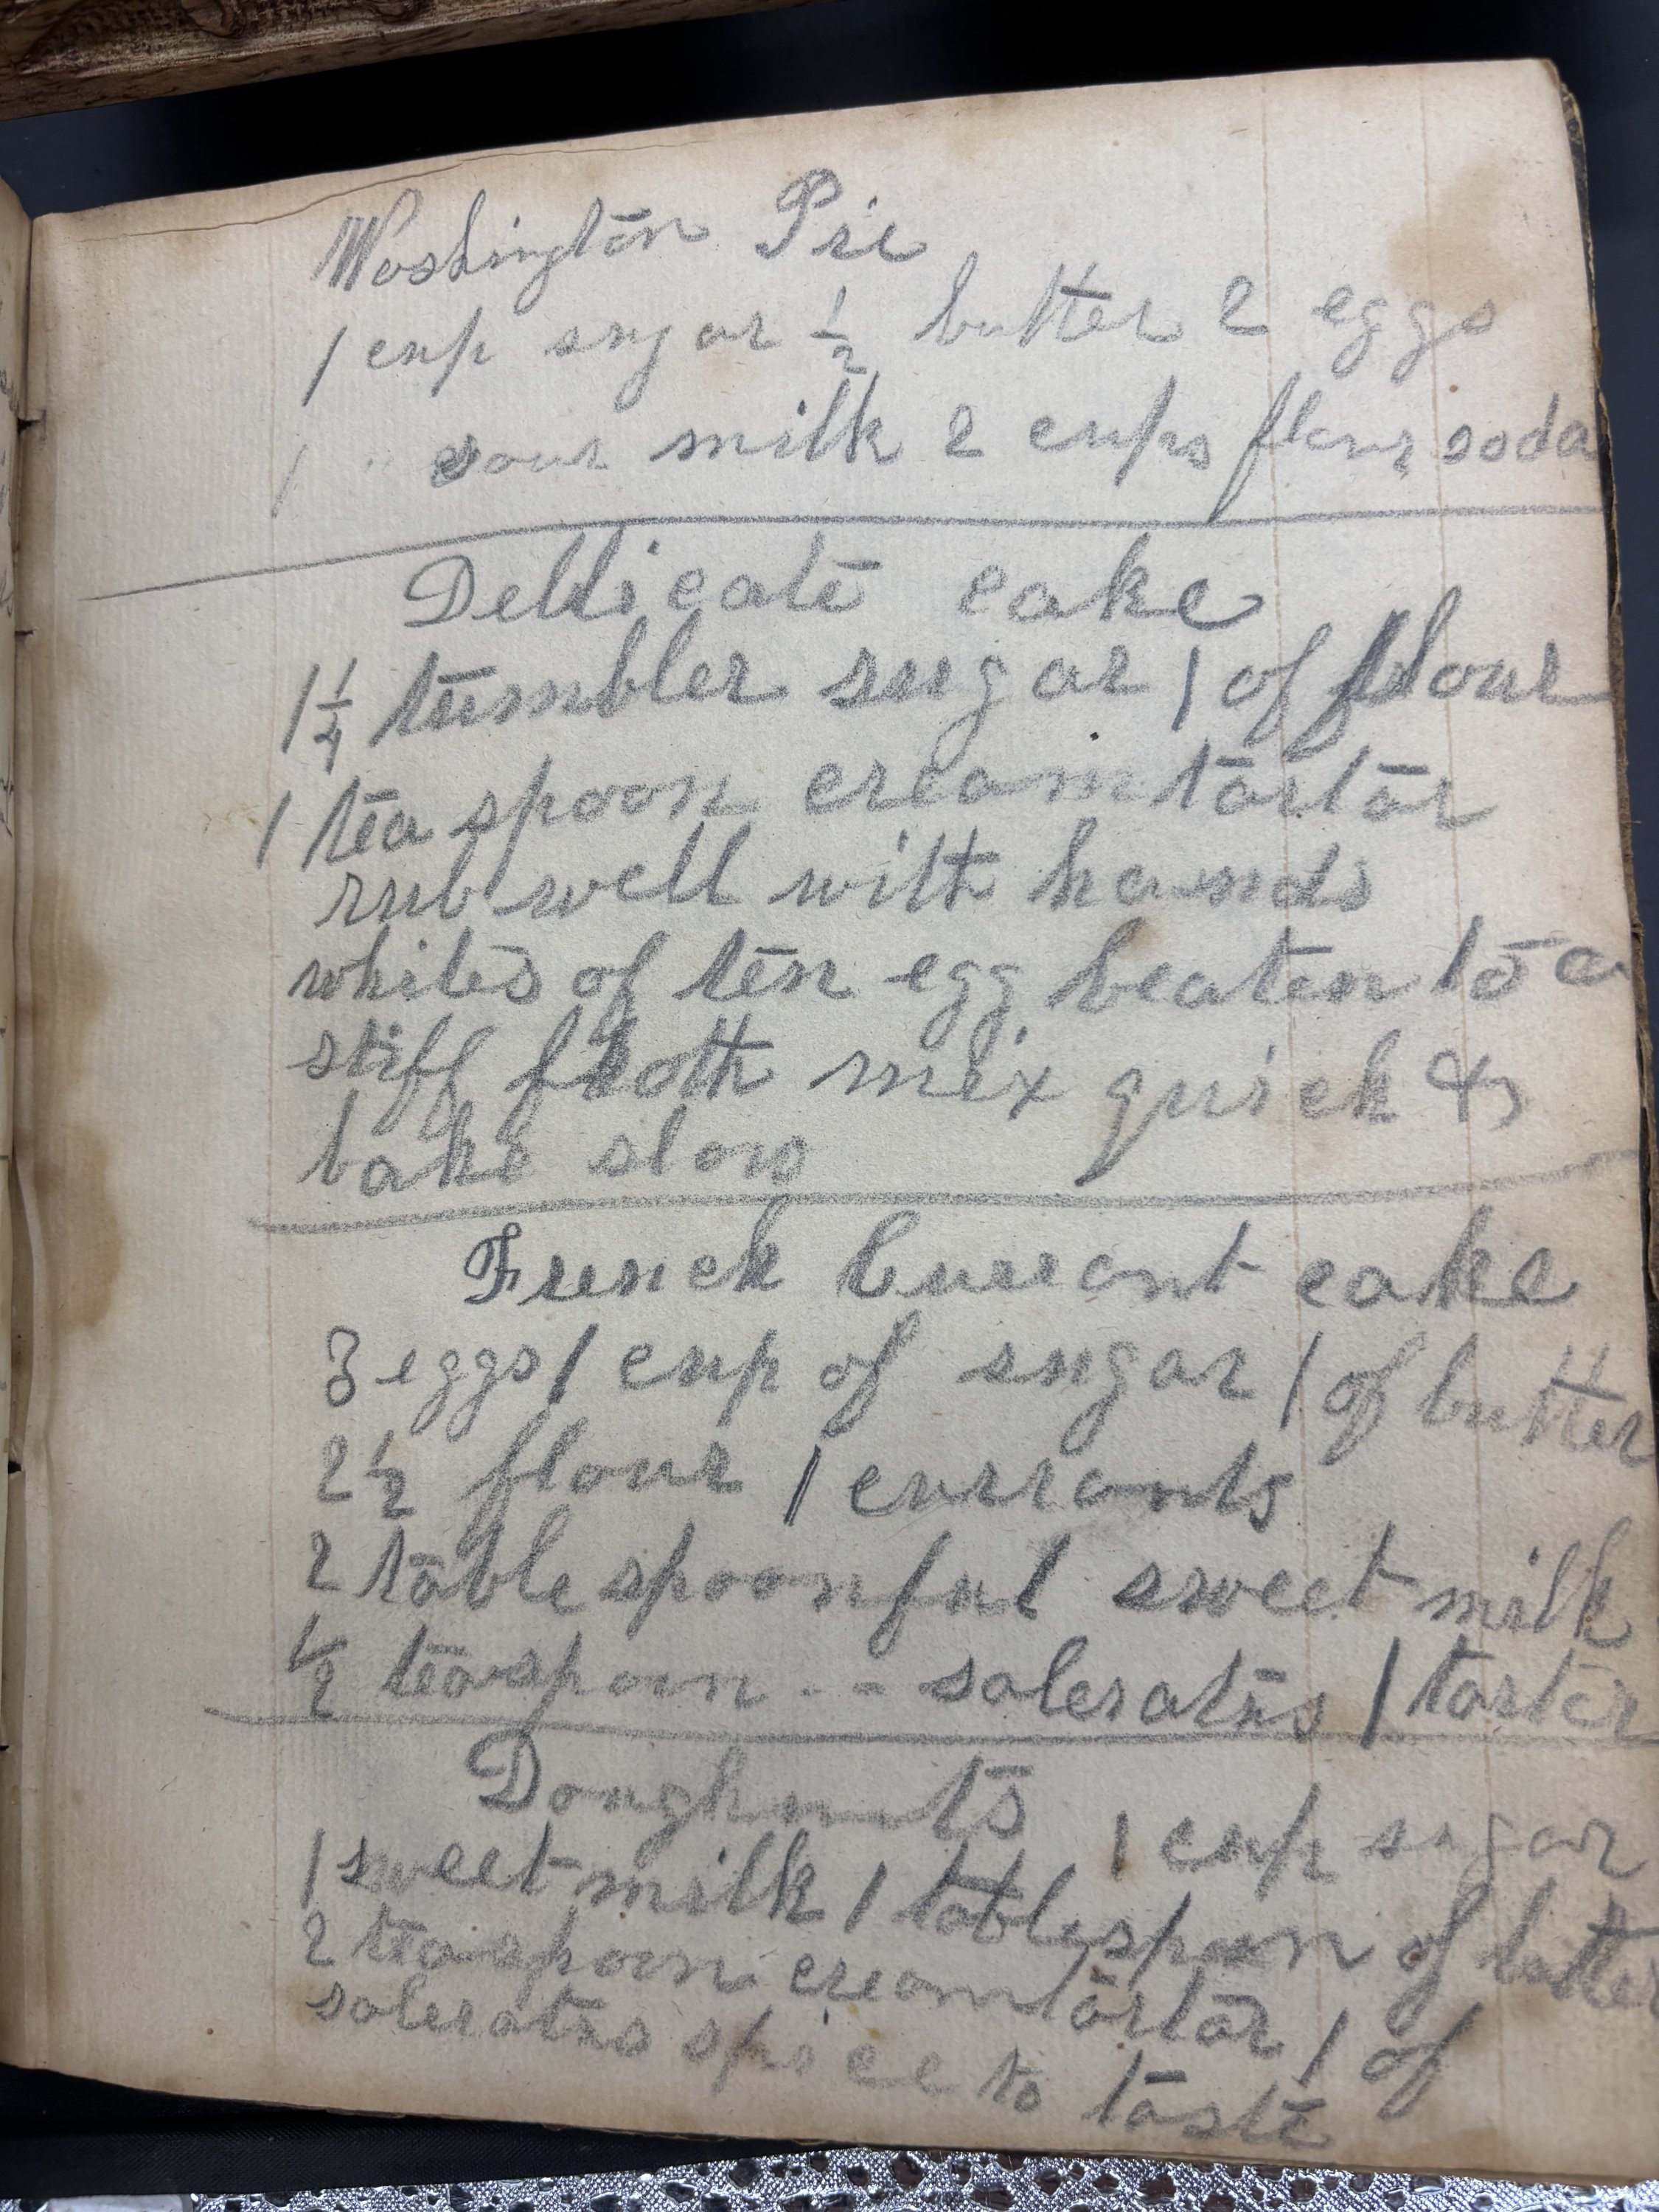 Washington Pie
1 cup sugar 1/2 butter 2 eggs
1 " sour milk 2 cups flour soda
Dellicate cake
1 1/4 tumbler sugar 1 of flour
1 tea spoon cream tartar
rub well with hands
whites of ten egg beaten to a
stiff froth mix quick &
bake slow
French Current cake
3 eggs 1 cup of sugar 1 of butter
2 1/2 flour 1 currants
2 table spoonful sweet milk
1/2 teaspoon -- saleratus 1 tarter
Doughnuts 1 cup sugar
1 sweet milk 1 tablespoon of butter
2 teaspoon cream tartar 1 of
saleratus spice to taste